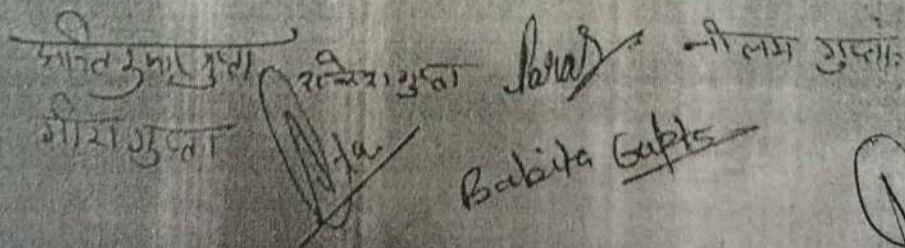 अनित कुमार गुप्ता राजेश गुप्ता Paras नीलम गुप्ता
मीरा गुप्ता Babita Gupta